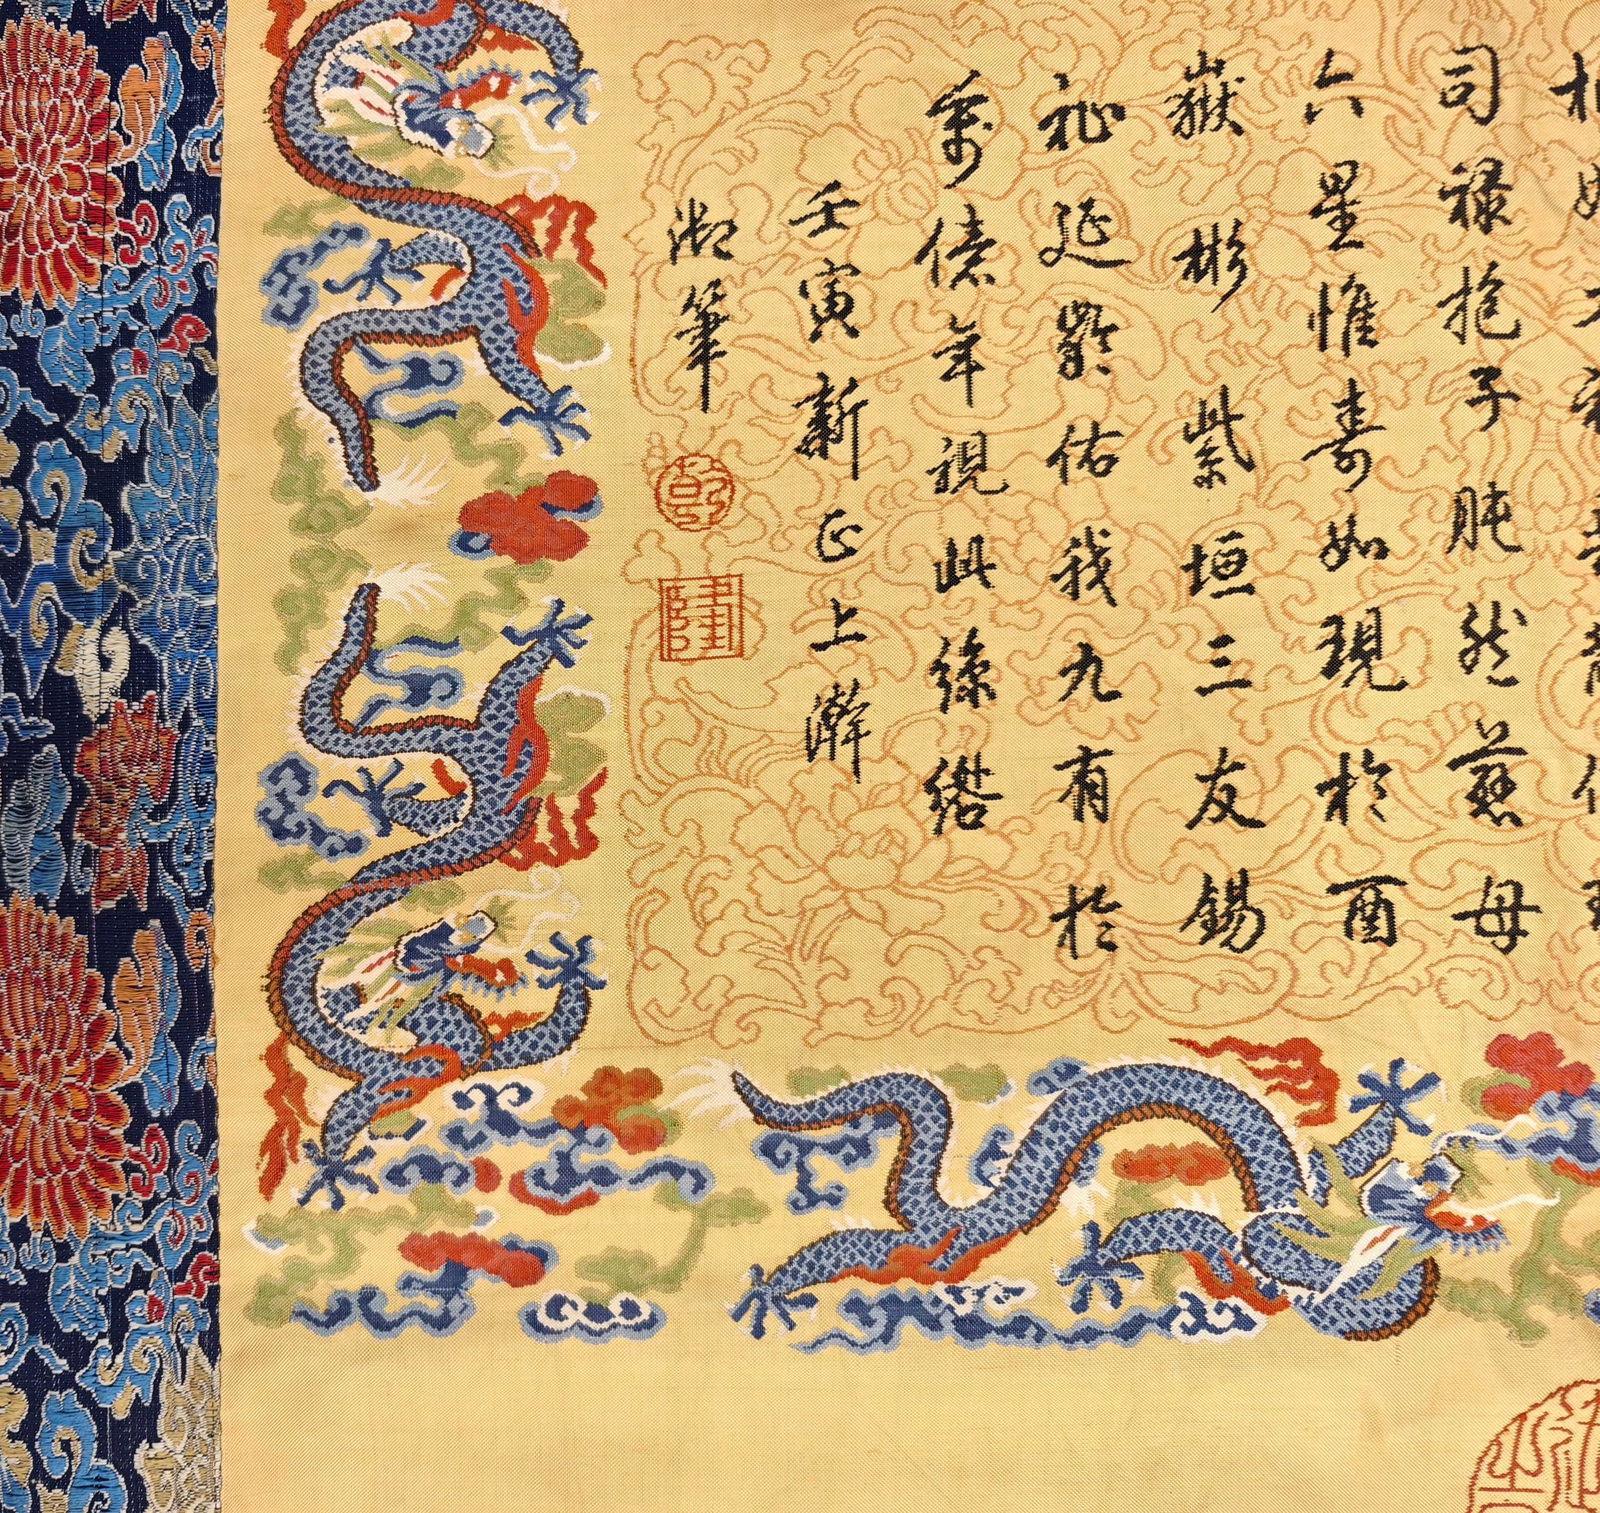 司祿抱子肫然慈母
六星惟壽如現於酉
嶽彬紫垣三友錫
祉延齡佑我九有於
萬億年視此線綹
壬寅新正上澣
御筆
乾
隆